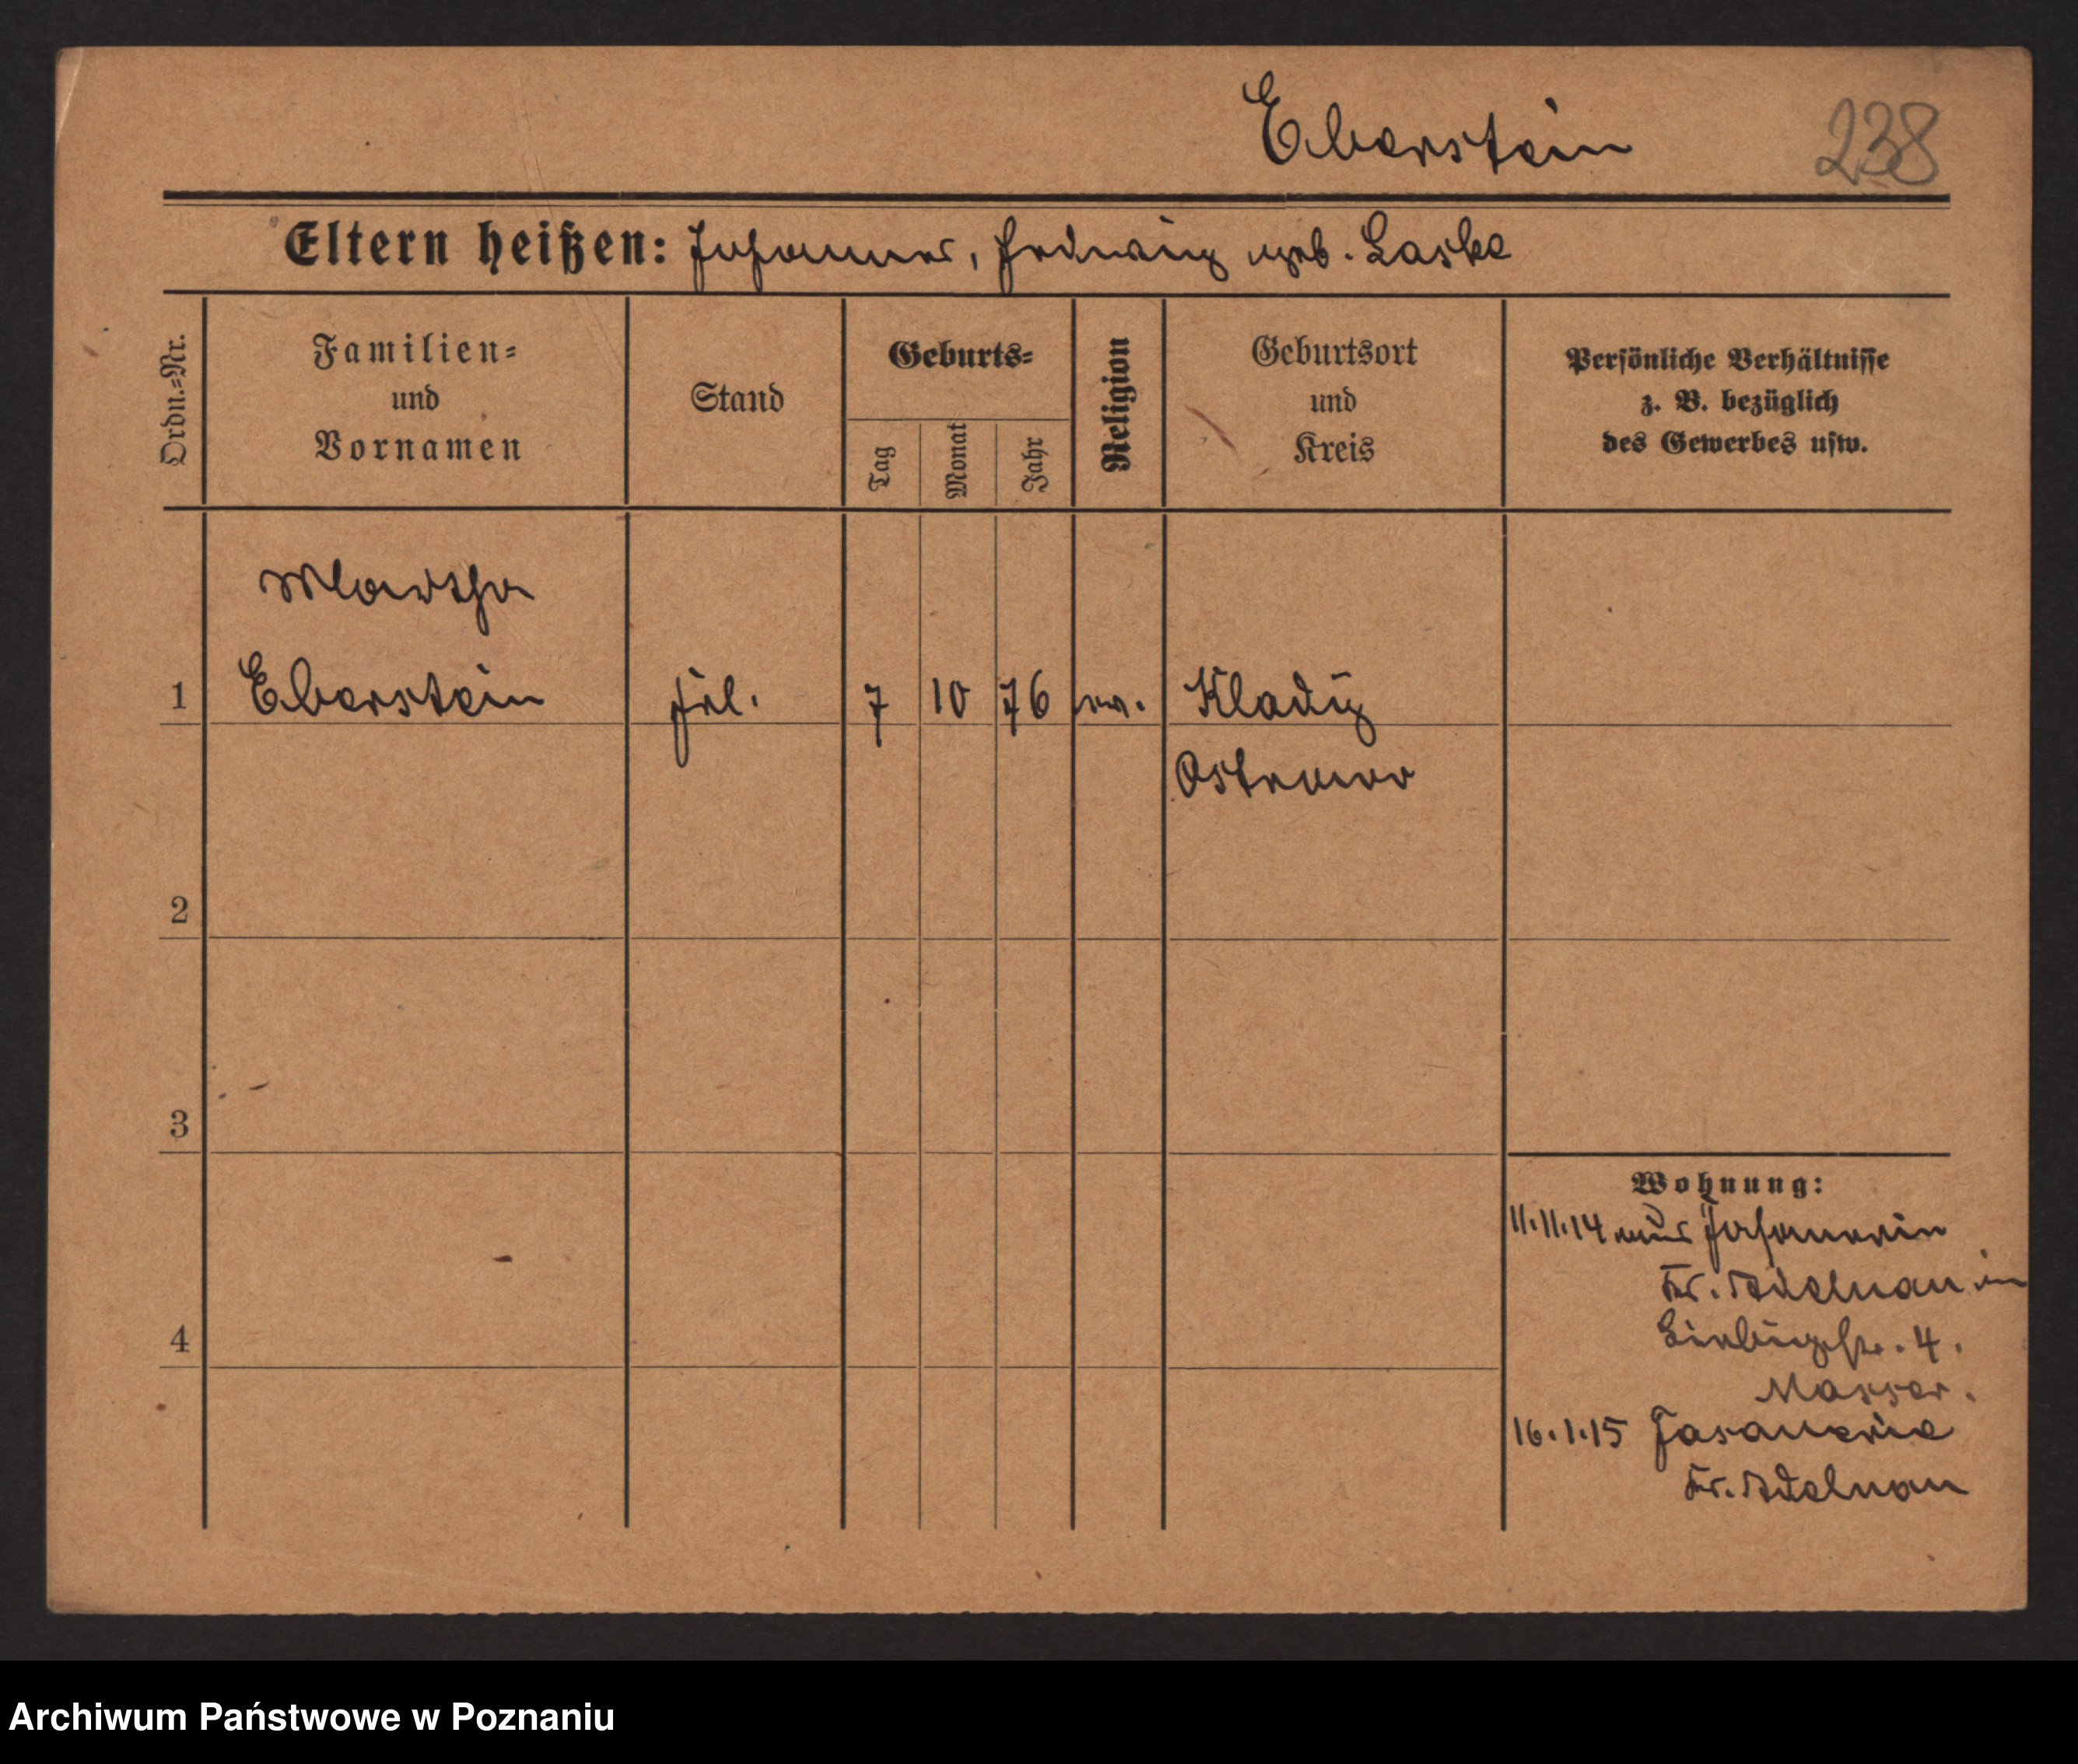 Eberstein 238
Eltern heißen: Johannes, Hedwig geb. Laske
Ordn.-Nr.
Familien-
und
Vornamen
Stand
Geburts-
Tag
Monat
Jahr
Religion
Geburtsort
und
Kreis
Persönliche Verhältnisse
z. B. bezüglich
des Gewerbes usw.
Martha
1 Eberstein frl. 7 10 76 ev. Kladig
Osterode
2
3
4
Wohnung:
11.11.14 aus
4.
16.1.15
Archiwum Państwowe w Poznaniu